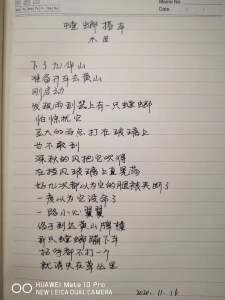 Memo No.
螳螂搭车
木瓜
下了九华山
准备开车去黄山
刚启动
发现雨刮器上有一只螳螂
怕惊扰它
豆大的雨点打在玻璃上
也不敢刮
深秋的风把它吹得
在挡风玻璃上直晃荡
好几次都以为它的腿被夹断了
一度以为它没命了
一路小心翼翼
终于到达黄山脚楼
那只螳螂蹦下车
招呼都不打一个
就消失在草丛里
2020.11.18
HUAWEI Mate 10 Pro
NEW LEICA DUAL CAMERA